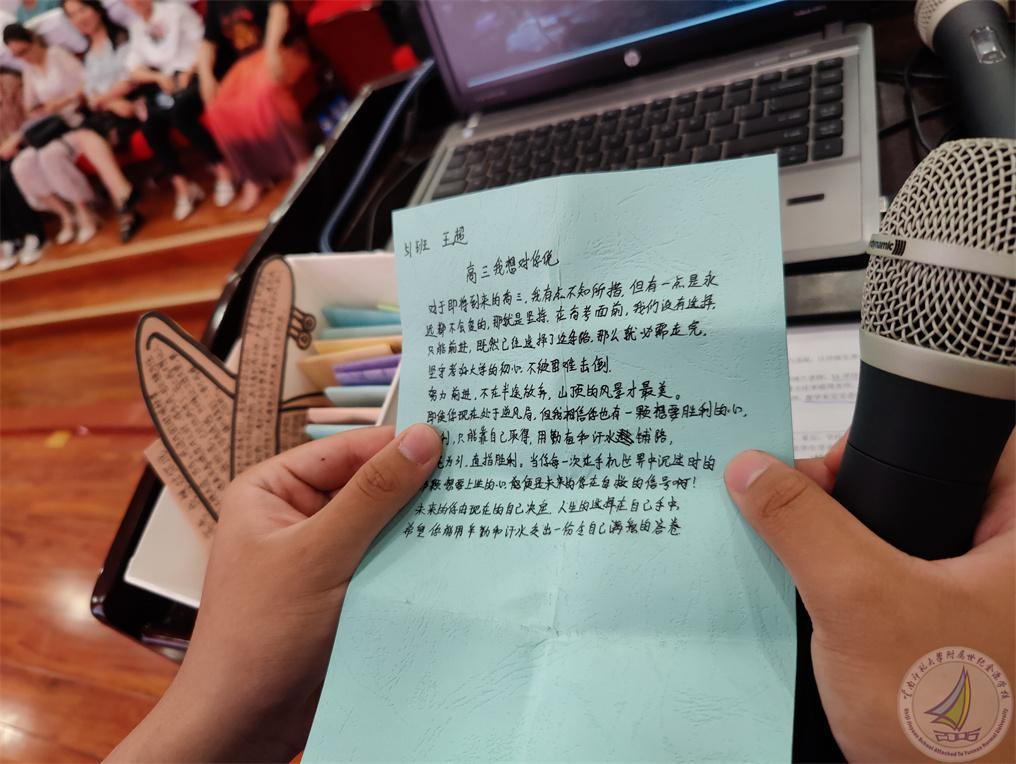 51班 王超
高三我想对你说
对于即将到来的高三,我有点不知所措,但有一点是永
远都不会变的,那就是坚持,在高考面前,我们没有选择,
只能前进,既然已经选择了这条路,那么我必需走完,
坚守考好大学的初心,不被困难击倒,
努力前进,不在半途放弃,山顶的风景才最美。
即使你现在处于逆风局,但我相信你也有一颗想要胜利的心,
利,只能靠自己取得,用勤奋和汗水铺路,
为引,直指胜利。当你每一次在手机世界中沉迷时的
想要上进的心 都使是未来的你在自救的信号啊!
未来的你由现在的自己决定,人生的选择在自己手中,
希望你能用辛勤和汗水交出一份令自己满意的答卷
hp
dynamic
云南师范大学附属世纪金源学校
Shiji Jinyuan School Attached To Yunnan Normal University
2006